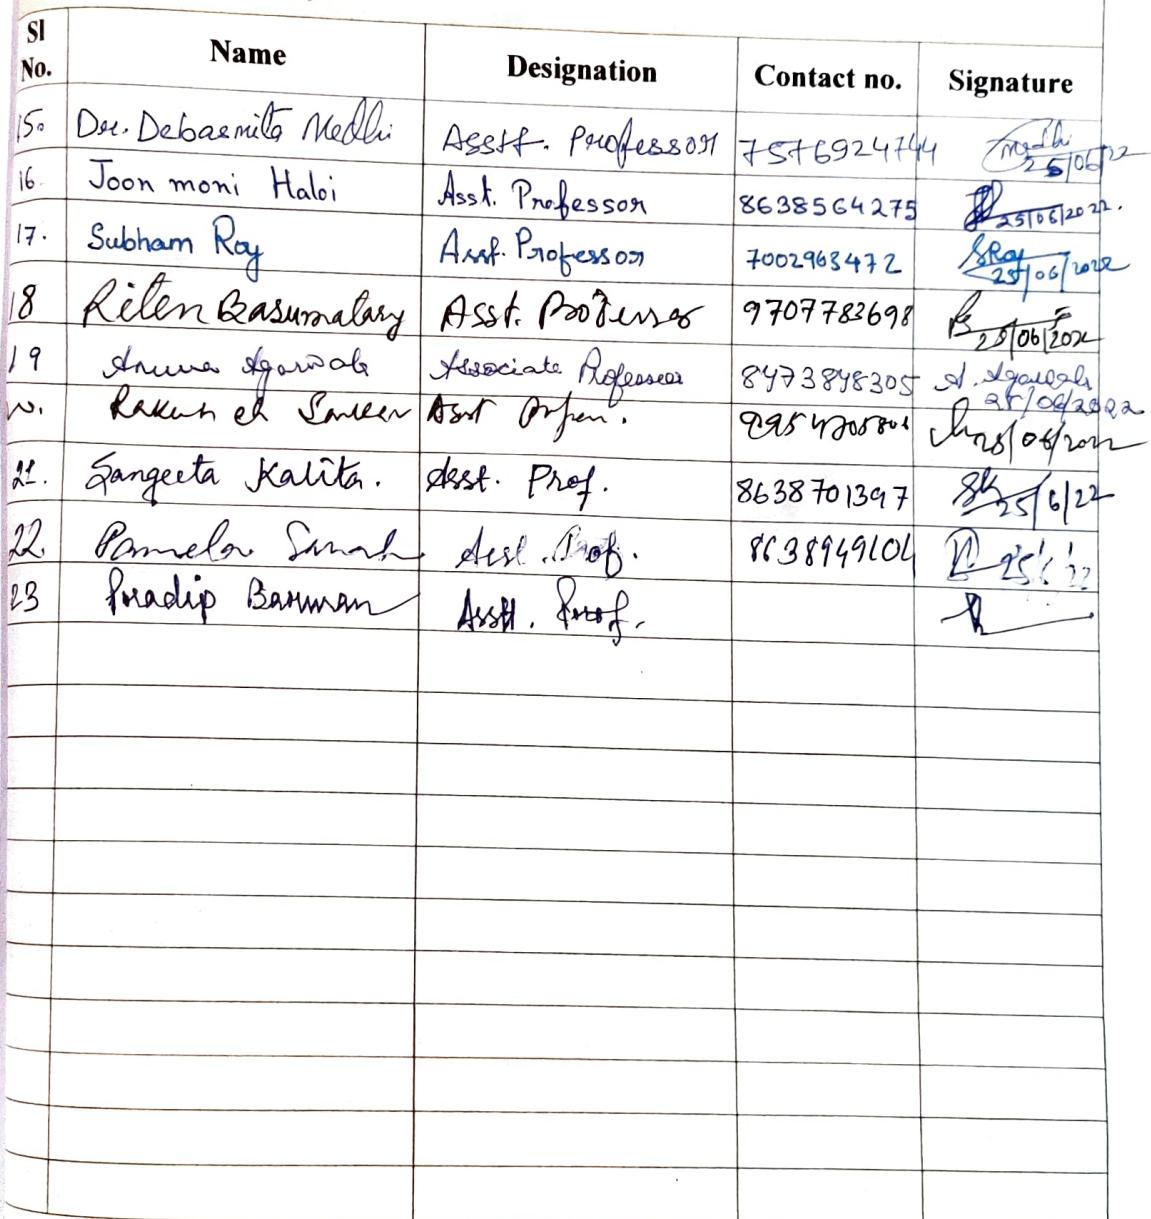 Sl No. Name Designation Contact no. Signature
15. Dr. Debasmita Medhi Asstt. Professor 7576924744 Medhi 25/06/22
16. Joon moni Haloi Asst. Professor 8638564275 25/06/2022.
17. Subham Roy Asst. Professor 7002963472 SRoy 25/06/2022
18 Riten Basumatary Asst. Professor 9707782698 25/06/2022
19 Aruna Agarwala Associate Professor 8473898305 A. Agarwala 25/06/2022
20. Asst 25/06/2022
21. Sangeeta Kalita. Asst. Prof. 8638701397 SK 25/6/22
22. Pamela Asst. Prof. 8638949104
23 Pradip Barman Asstt. Prof.